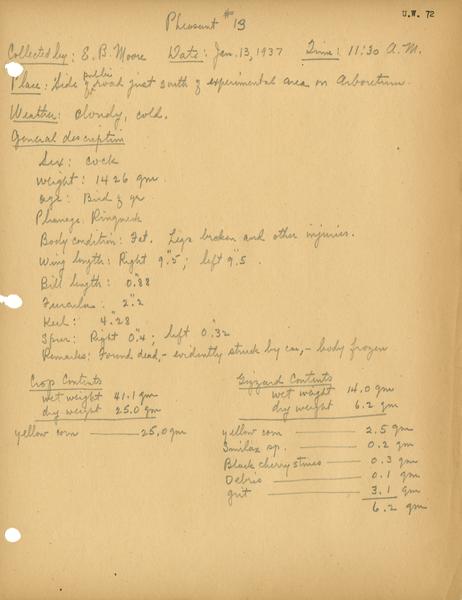 Pheasant #13
U.W. 72
Collected by: E. B. Moore Date: Jan. 13, 1937 Time: 11:30 A.M.
Place: Side of public road just south of experimental area on Arboretum.
Weather: cloudy, cold.
General description
Sex: cock
Weight: 1426 gm.
Age: Bird of yr
Plumage: Ringneck
Body condition: Fat. Legs broken and other injuries.
Wing length: Right 9."5; left 9."5.
Bill length: 0."88
Furculum: 2."2
Keel: 4."28
Spur: Right 0."4; left 0."32
Remarks: Found dead, - evidently struck by car, - body frozen
Crop Contents
wet weight 41.1 gm
dry weight 25.0 gm
yellow corn 25.0 gm
Gizzard Contents
wet weight 14.0 gm
dry weight 6.2 gm
yellow corn 2.5 gm
Smilax sp. 0.2 gm
Black cherry stones 0.3 gm
Debris 0.1 gm
grit 3.1 gm
6.2 gm